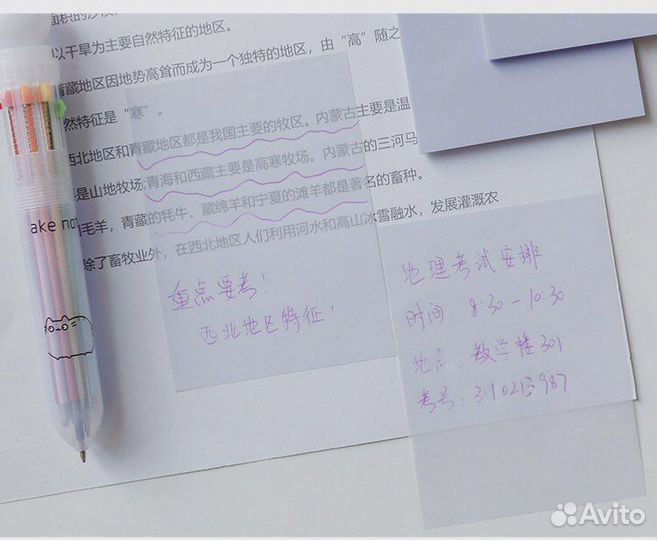 面积的沙漠
以干旱为主要自然特征的地区。
青藏地区因地势高耸而成为一个独特的地区，由“高”随之
然特征是“寒”。
西北地区和青藏地区都是我国主要的牧区。内蒙古主要是温
是山地牧场;青海和西藏主要是高寒牧场。内蒙古的三河马
毛羊，青藏的牦牛、藏绵羊和宁夏的滩羊都是著名的畜种。
除了畜牧业外，在西北地区人们利用河水和高山冰雪融水，发展灌溉农
ake no
重点要考！
西北地区特征！
地理考试安排
时间：8:30-10:30
地点：教学楼301
考号：310215987
Avito